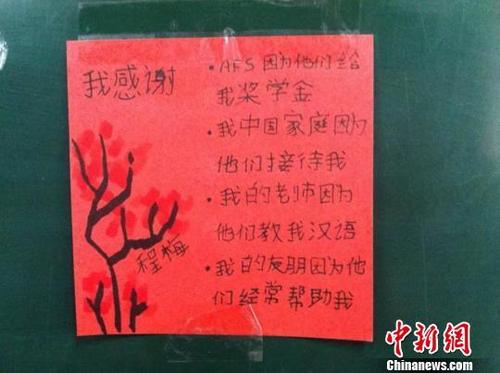 我感谢
• AFS因为他们给
我奖学金
• 我中国家庭因为
他们接待我
• 我的老师因为
他们教我汉语
• 我的友朋因为他
们经常帮助我
程梅
中新网
WWW.CHINANEWS.COM